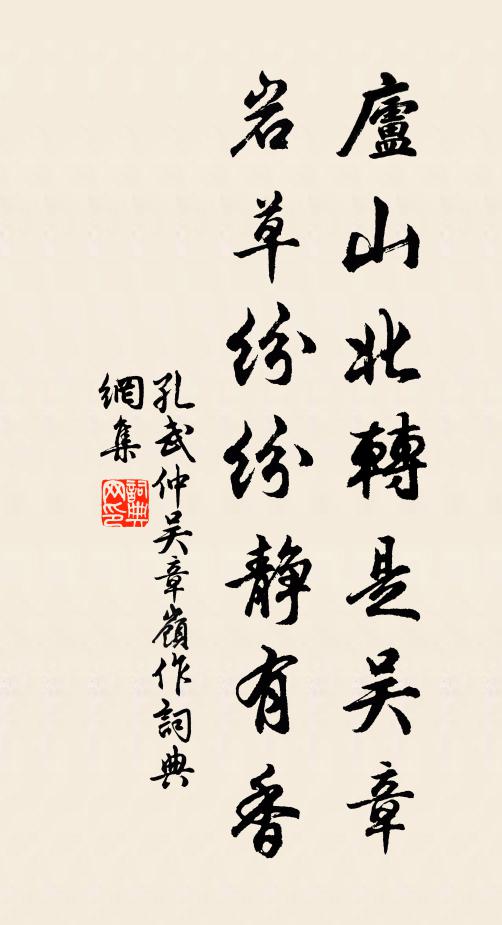 廬山北轉是吴章
岩草紛紛靜有香
孔武仲吴章嶺作詞典
網集
詞典
网印